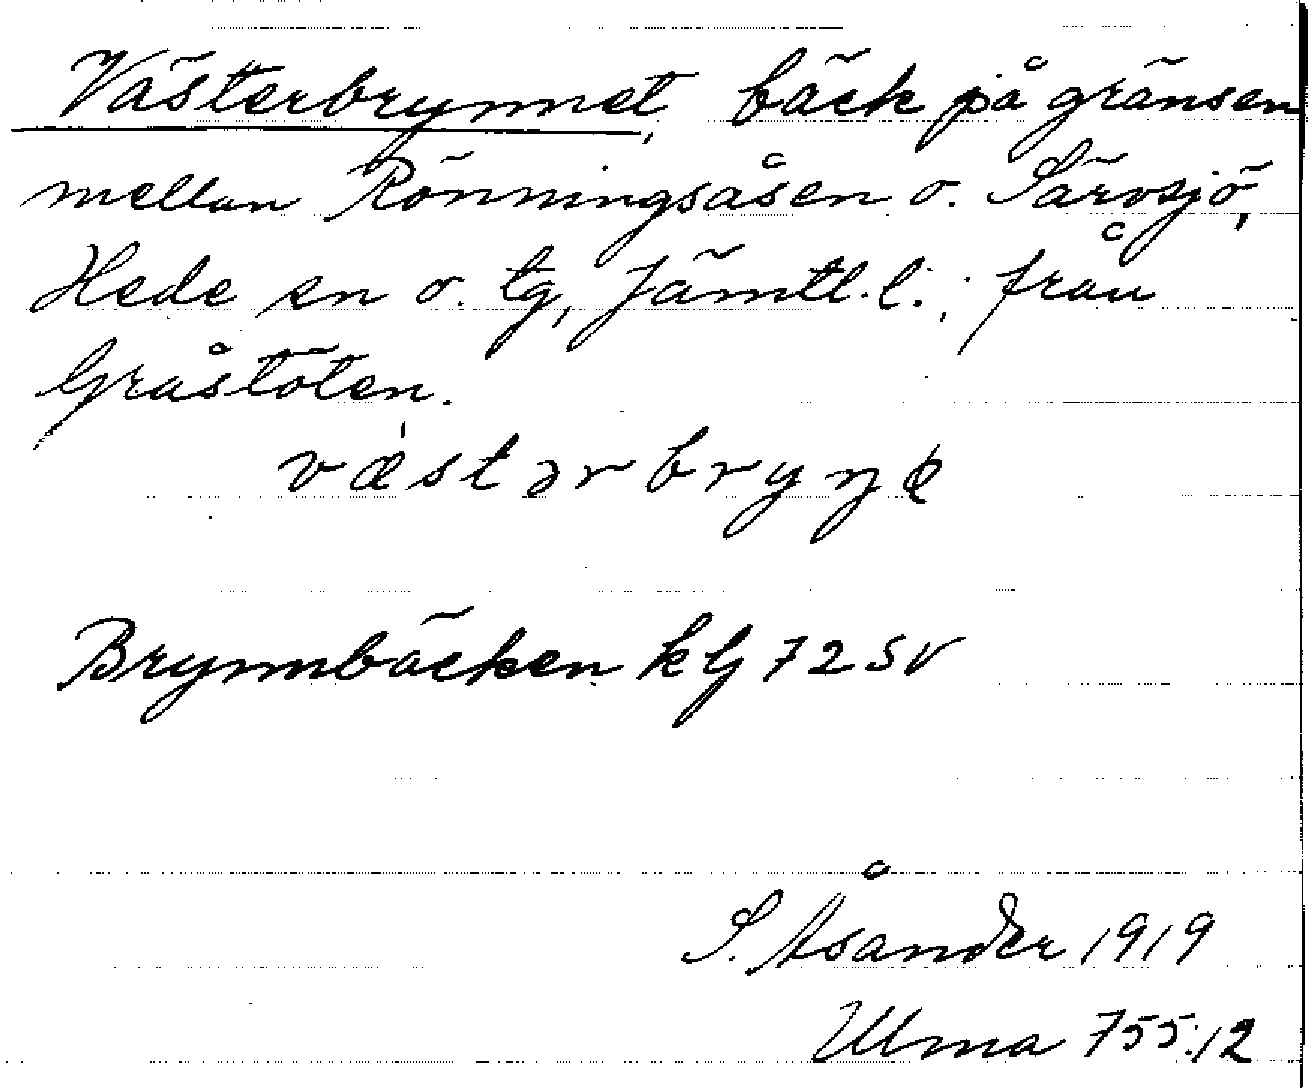 Västerbrynnet, bäck på gränsen
mellan Rönningsåsen o. Särvsjö,
Hede sn o. tg, Jämtl. l.; från
Gråstöten.
væ̍stərbryṇe̸
Brynnbäcken kG 72 SV
S. Åsander 1919
Ulma 755:12